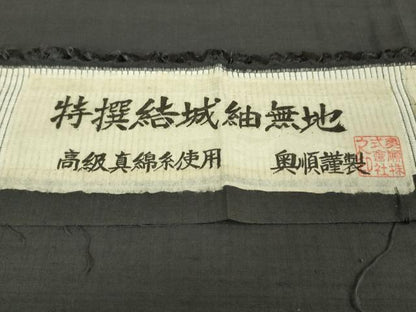 特撰結城紬無地
高級真綿糸使用 奥順謹製